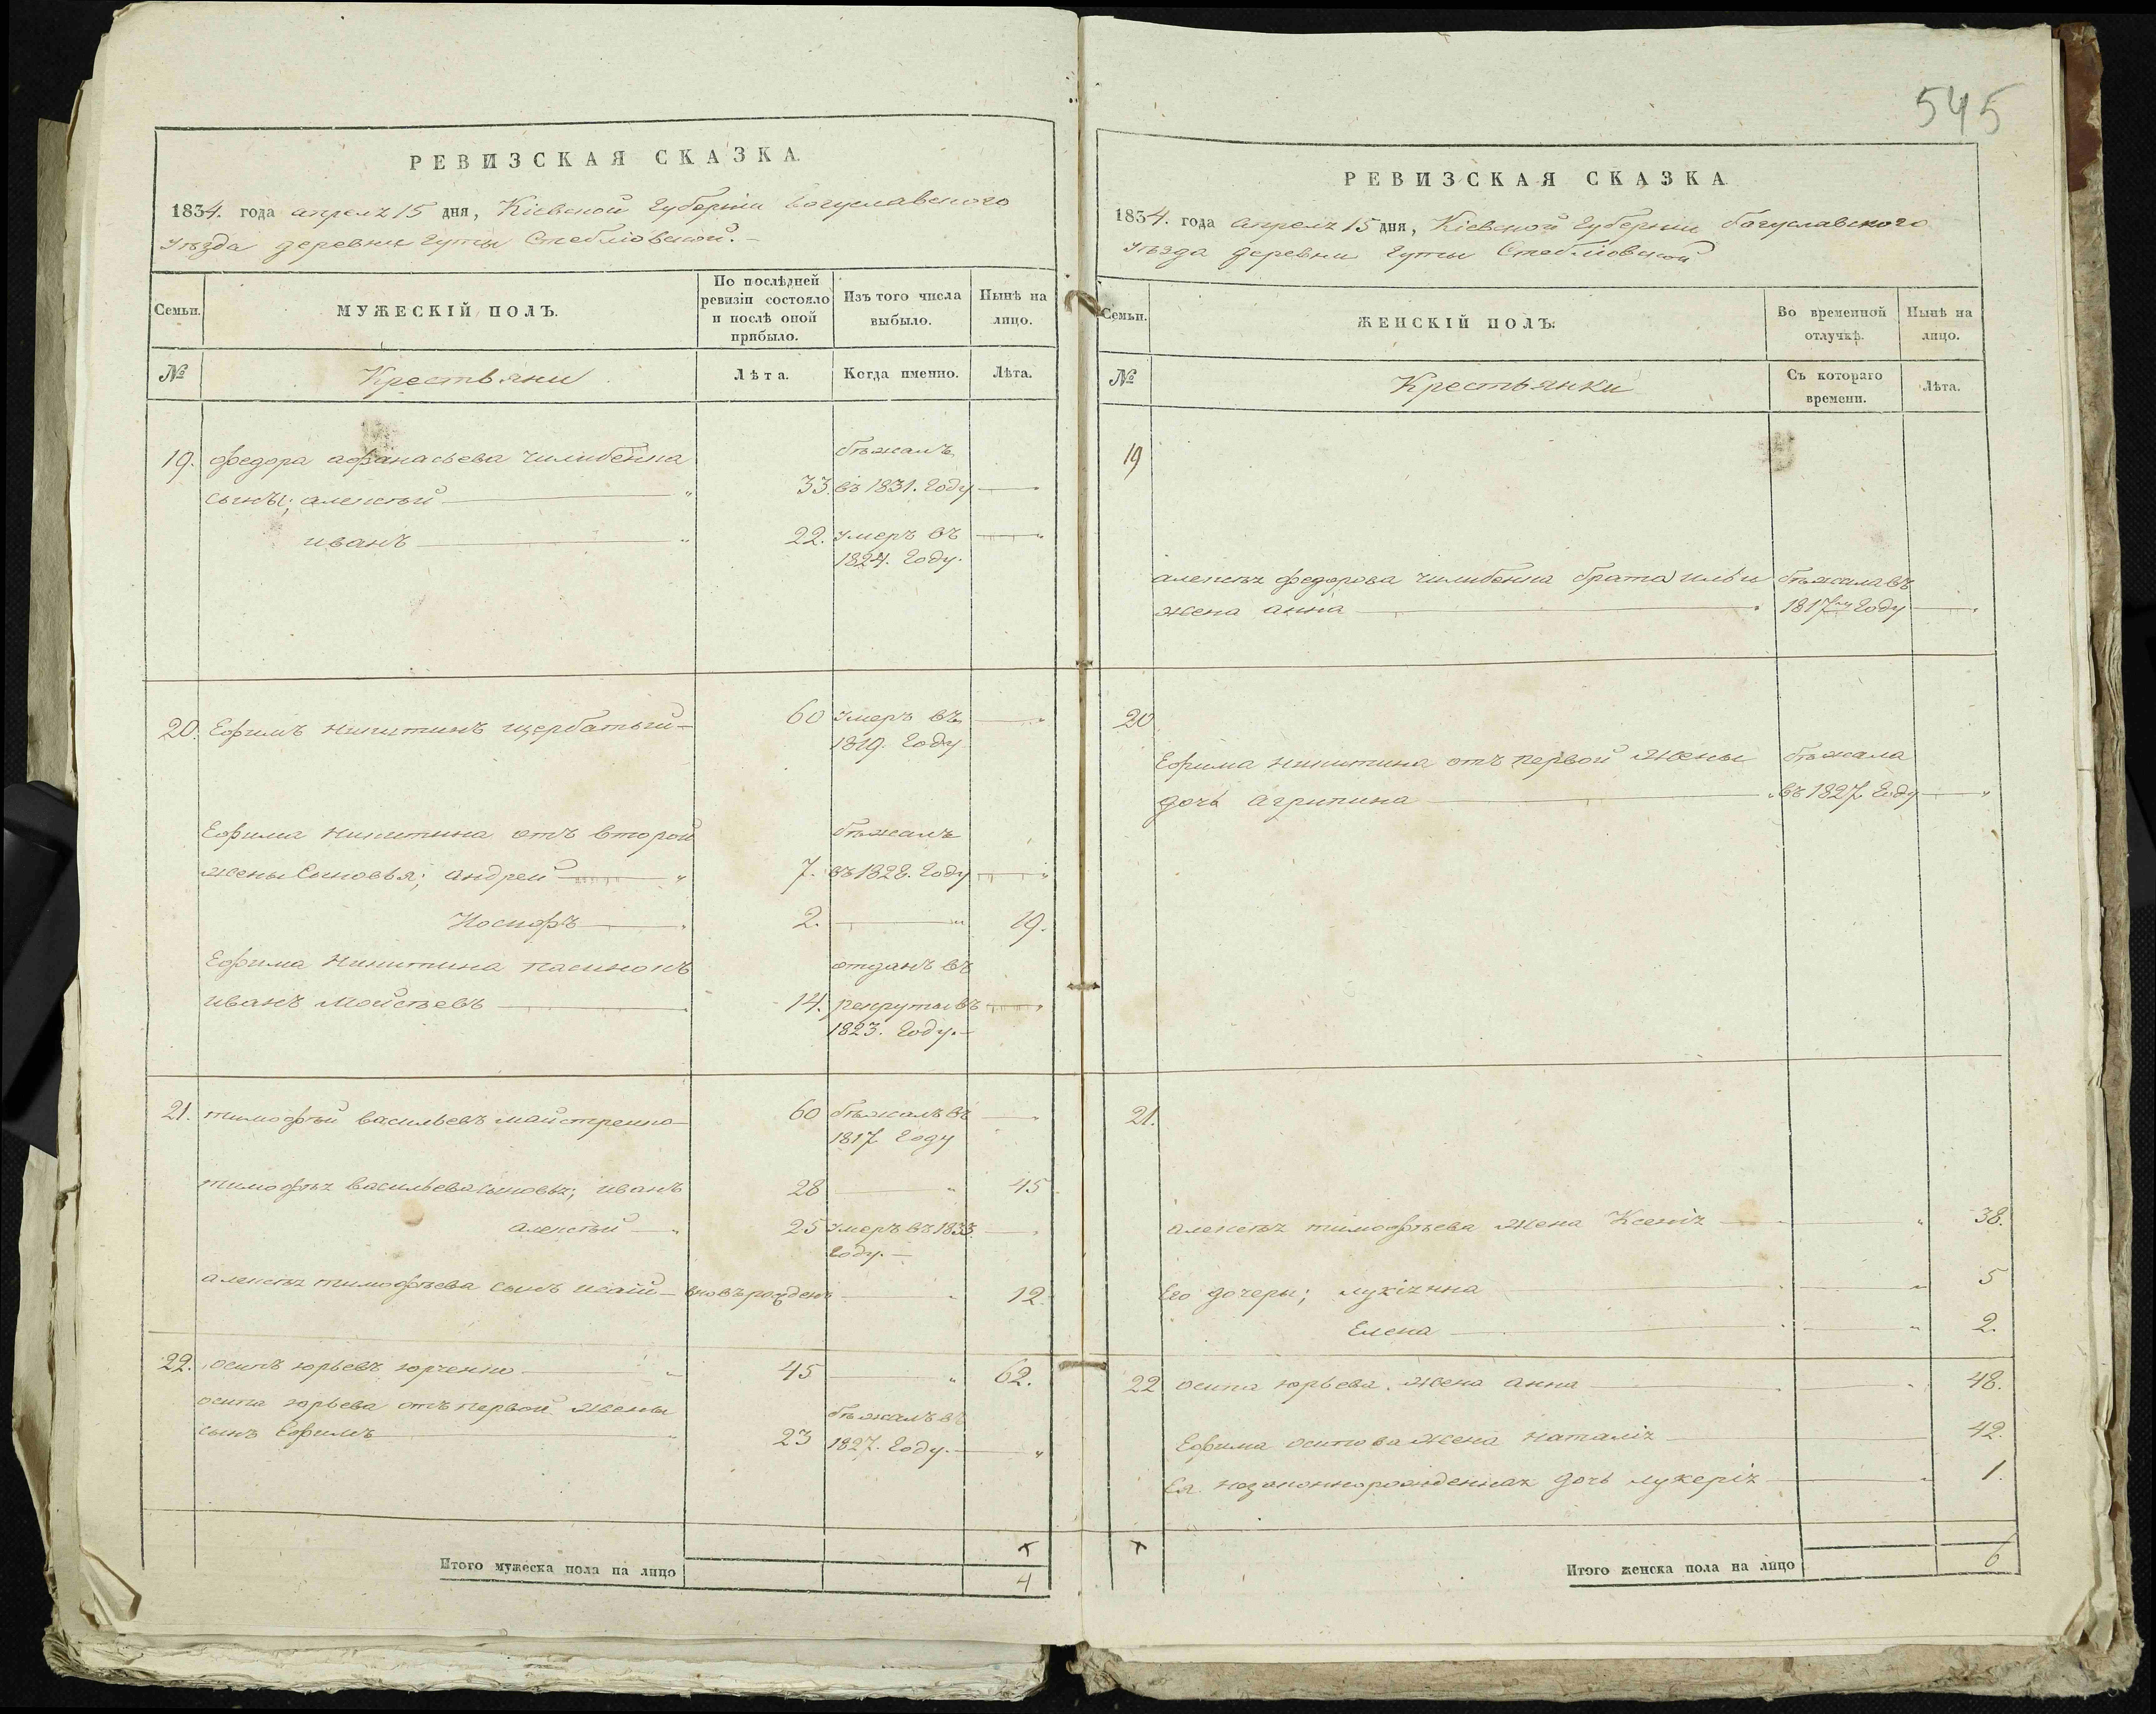 РЕВИЗСКАЯ СКАЗКА.
1834. года апреля 15 дня, Кіевской Губерніи Богуславского
уѣзда деревни Гуты Стебліовской.
Семьи.
МУЖЕСКІЙ ПОЛЪ.
По послѣдней ревизіи состояло и послѣ оной прибыло.
Изъ того числа выбыло.
Нынѣ на лицо.
№
Крестьяни
Лѣта.
Когда именно.
Лѣта.
19. федора афанасьева чилибенка бѣжалъ
сынъ; алексѣй 33. въ 1831. Году
иванъ 22. умеръ въ
1824. Году.
20. Ефимъ никитинъ щербатый 60 умеръ въ
1819. Году
Ефима никитина отъ второй бѣжалъ
жены Сыновья; андрей 7. въ 1828. Году
Иосифъ 2. 19.
Ефима никитина пасинокъ отданъ въ
иванъ Мойсѣевъ 14. рекруты въ
1823. Году.
21. тимофѣй васильевъ майстренко 60 бѣжалъ въ
1817 Году
тимофѣя васильева сыновья; иванъ 28 45
алексѣй 25 умеръ въ 1833
Году.
алексѣя тимофѣева сынъ исай вновьрожденъ 12.
22. осипъ юрьевъ юрченко 45 62.
осипа юрьева отъ первой жены бѣжалъ въ
сынъ Ефимъ 23 1827. Году.
Итого мужеска пола на лицо 4
545
РЕВИЗСКАЯ СКАЗКА
1834. года апреля 15 дня, Кіевской Губерніи богуславского
уѣзда деревни Гуты Стебліовской
Семьи.
ЖЕНСКІЙ ПОЛЪ.
Во временной отлучкѣ.
Нынѣ на лицо.
№
Крестьянки
Съ котораго времени.
Лѣта.
19
алексѣя федорова чилибенка брата ильи бѣжала въ
жена анна 1817му Году
20
Ефима никитина отъ первой жены бѣжала
дочь агрипина въ 1827 Году
21.
алексѣя тимофѣева жена Ксенія 38.
Его дочеры; лукіянна 5
Елена 2.
22 осипа юрьева жена анна 48.
Ефима осипова жена наталія 42.
Ея незаконнорожденная дочь лукерія 1.
Итого женска пола на лицо 6